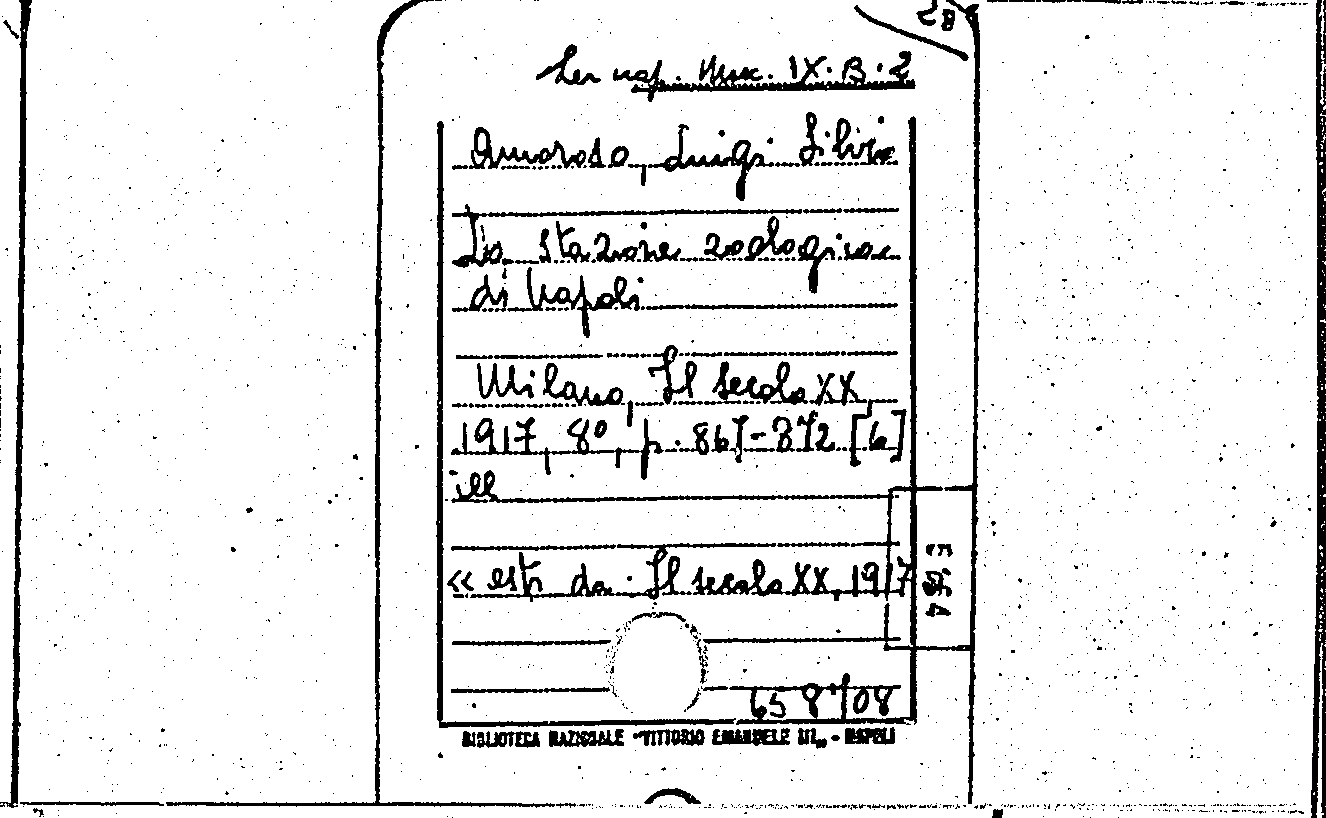 Sez nap. Misc. IX. B. 2
Amoroso, Luigi Silvio
La stazione zoologica
di Napoli
Milano, Il secolo XX,
1917, 8º, p. 867-872 [6]
ill
<< estr da: Il secolo XX, 1917
BIBLIOTECA NAZIONALE "VITTORIO EMANUELE III„ - NAPOLI